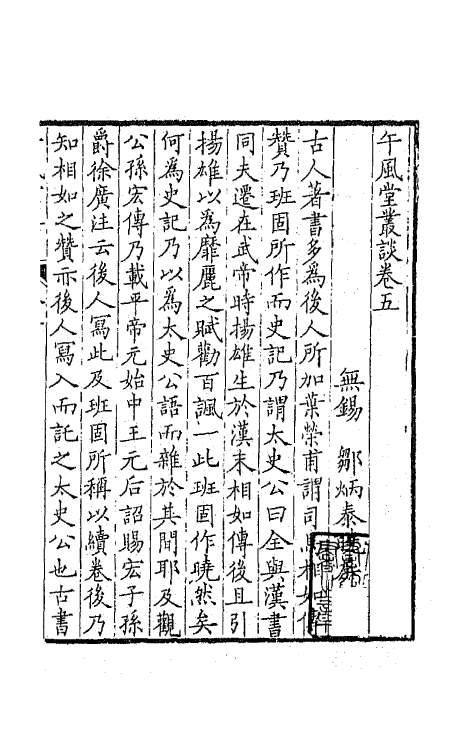 午風堂叢談卷五
無錫　鄒炳泰
古人著書多為後人所加葉榮甫謂司馬相如傳
贊乃班固所作而史記乃謂太史公曰全與漢書
同夫遷在武帝時揚雄生於漢末相如傳後且引
揚雄以為靡麗之賦勸百諷一此班固作曉然矣
何為史記乃以為太史公語而雜於其間耶及觀
公孫宏傳乃載平帝元始中王元后詔賜宏子孫
爵徐廣注云後人寫此及班固所稱以續卷後乃
知相如之贊亦後人寫入而託之太史公也古書